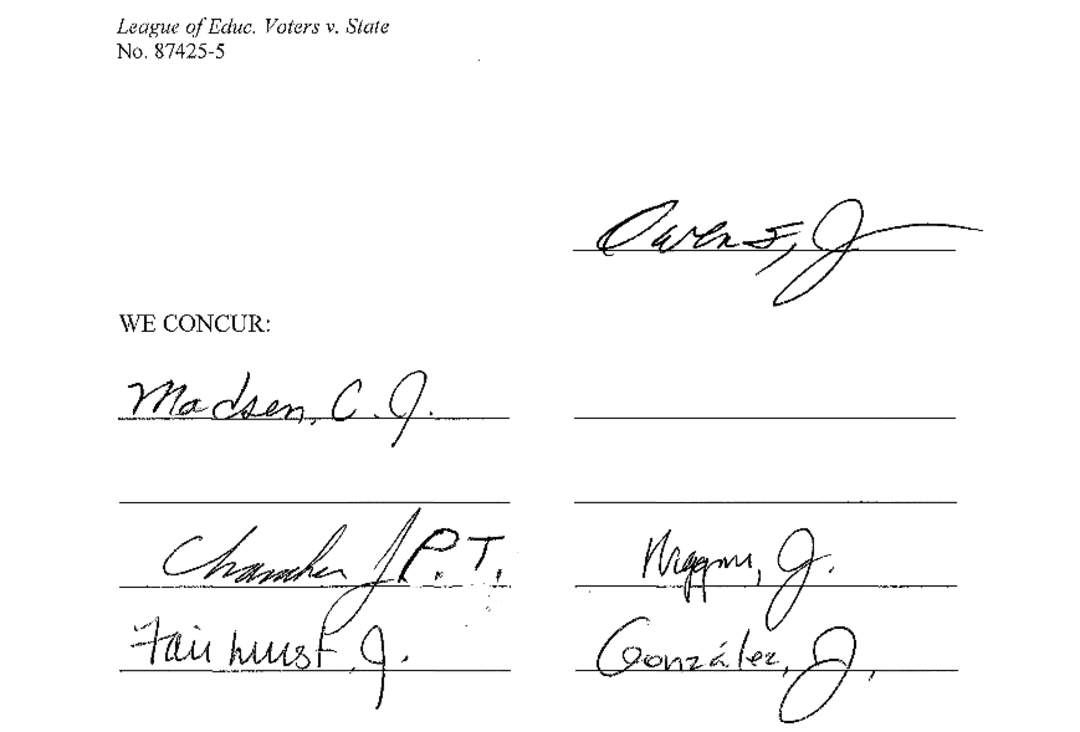 League of Educ. Voters v. State
No. 87425-5
Owens, J
WE CONCUR:
Madsen, C. J.
J.P.T.
Wiggins, J.
Fairhurst, J.
González, J.